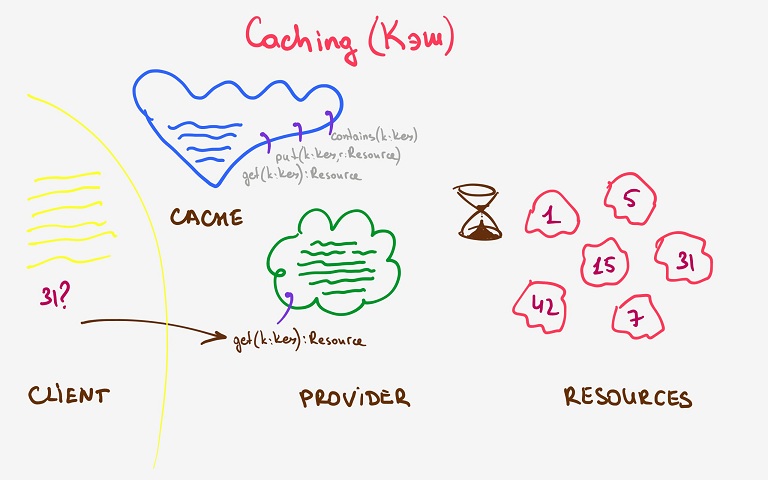 Caching (Кэш)
contains(k:Key)
put(k:Key,r:Resource)
get(k:Key):Resource
CACHE
1
5
15
31
42
7
31?
get(k:Key):Resource
CLIENT
PROVIDER
RESOURCES